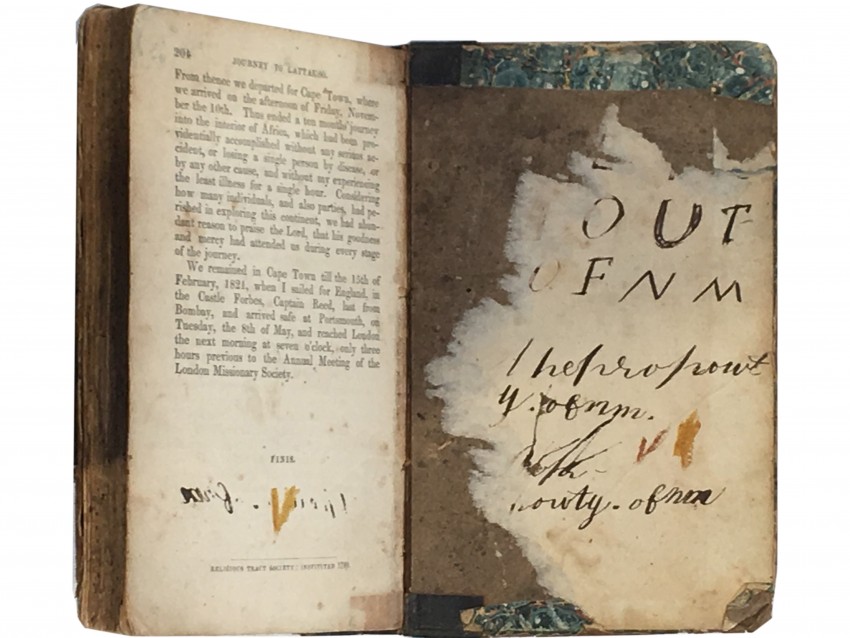 204
JOURNEY TO LATTAKOO.
From thence we departed for Cape Town, where
we arrived on the afternoon of Friday, Novem-
ber the 10th. Thus ended a ten months' journey
into the interior of Africa, which had been pro-
videntially accomplished without any serious ac-
cident, or losing a single person by disease, or
by any other cause, and without my experiencing
the least illness for a single hour. Considering
how many individuals, and also parties, had pe-
rished in exploring this continent, we had abun-
dant reason to praise the Lord, that his goodness
and mercy had attended us during every stage
of the journey.
We remained in Cape Town till the 15th of
February, 1821, when I sailed for England, in
the Castle Forbes, Captain Reed, last from
Bombay, and arrived safe at Portsmouth, on
Tuesday, the 8th of May, and reached London
the next morning at seven o'clock, only three
hours previous to the Annual Meeting of the
London Missionary Society.
FINIS.
RELIGIOUS TRACT SOCIETY: INSTITUTED 1799.
OUT
OF NM
y. ofnm.
owty. ofnm